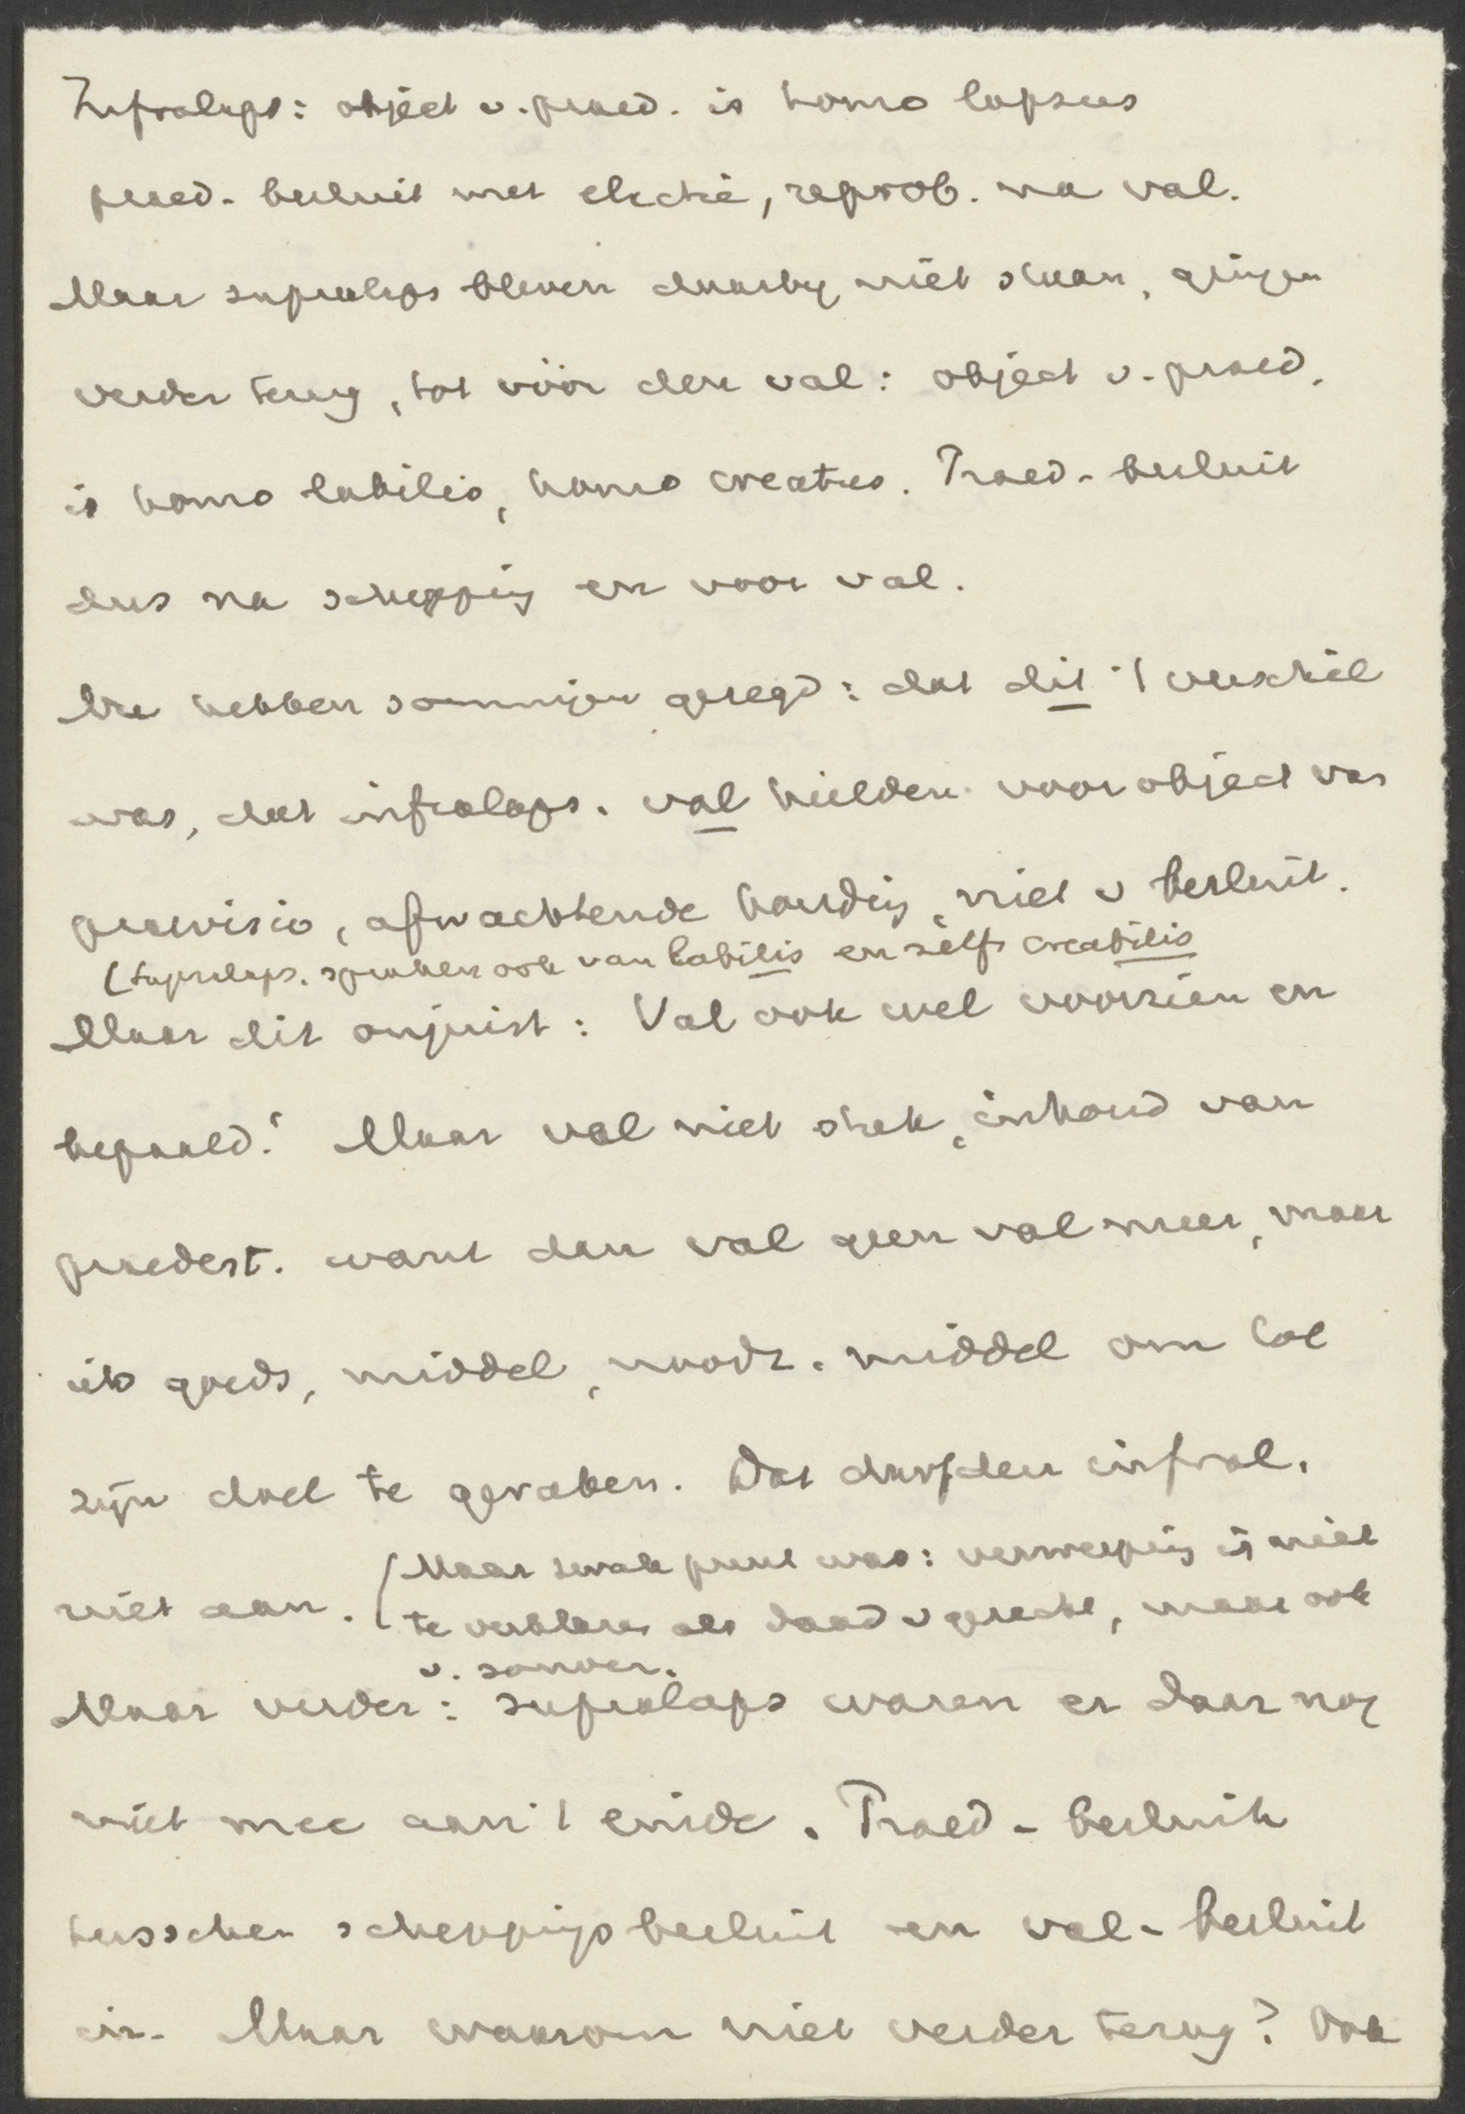 Infralaps: object v. praed. is homo lapsus
praed- besluit met electie, reprob. na val.
Maar supralaps bleven daarby niet staan, gingen
verder terug, tot vóór den val: object v. praed.
is homo labilis, homo creatus. Praed- besluit
dus na schepping en voor val.
Nu hebben sommigen gezegd: dat dit 't verschil
was, dat infralaps. val hielden voor object van
praevisio, afwachtende houding, niet v besluit.
(Supralaps. spraken ook van labilis en zelfs creabilis
Maar dit onjuist: Val ook wel voorzien en
bepaald! Maar val niet stuk, inhoud van
praedest. want dan val geen val meer, maar
iets goeds, middel, noodz. middel om tot
zijn doel te geraken. Dat durfden infral.
niet aan. (Maar zwak punt was: verwerping is niet
te verklaren als daad v gerecht, maar ook
v. souver.
Maar verder: supralaps waren er daar nog
niet mee aan 't einde. Praed- besluit
tusschen scheppingsbesluit en val- besluit
in. Maar waarom niet verder terug? Ook